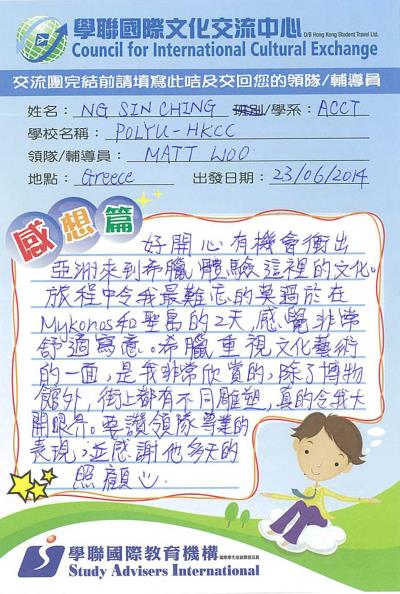 學聯國際文化交流中心
D/B Hong Kong Student Travel Ltd.
Council for International Cultural Exchange
交流團完結前請填寫此咭及交回您的領隊/輔導員
姓名: NG SIN CHING 班別/學系: ACCT
學校名稱: POLYU-HKCC
領隊/輔導員: MATT WOO
地點: Greece 出發日期: 23/06/2014
感想篇
好開心有機會衝出
亞洲來到希臘體驗這裡的文化。
旅程中令我最難忘的莫過於在
Mykonos和聖島的2天,感覺非常
舒適寫意。希臘重視文化藝術
的一面,是我非常欣賞的,除了博物
館外,街上都有不同雕塑,真的令我大
開眼界。要讚領隊專業的
表現;並感謝他多天的
照顧心.
學聯國際教育機構
Study Advisers International